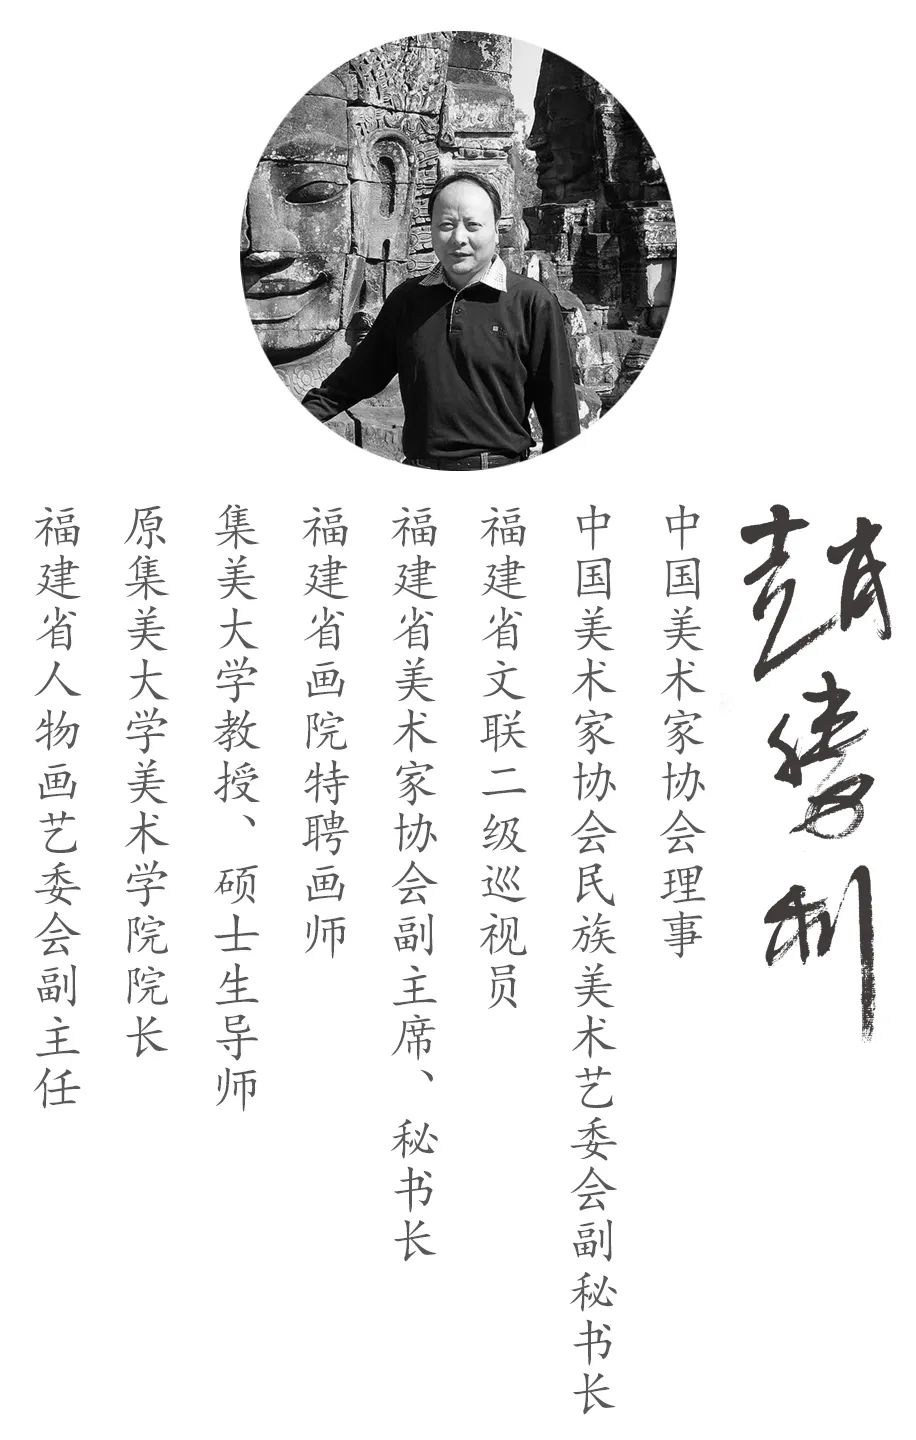 趙勝利
中国美术家协会理事
中国美术家协会民族美术艺委会副秘书长
福建省文联二级巡视员
福建省美术家协会副主席、秘书长
福建省画院特聘画师
集美大学教授、硕士生导师
原集美大学美术学院院长
福建省人物画艺委会副主任